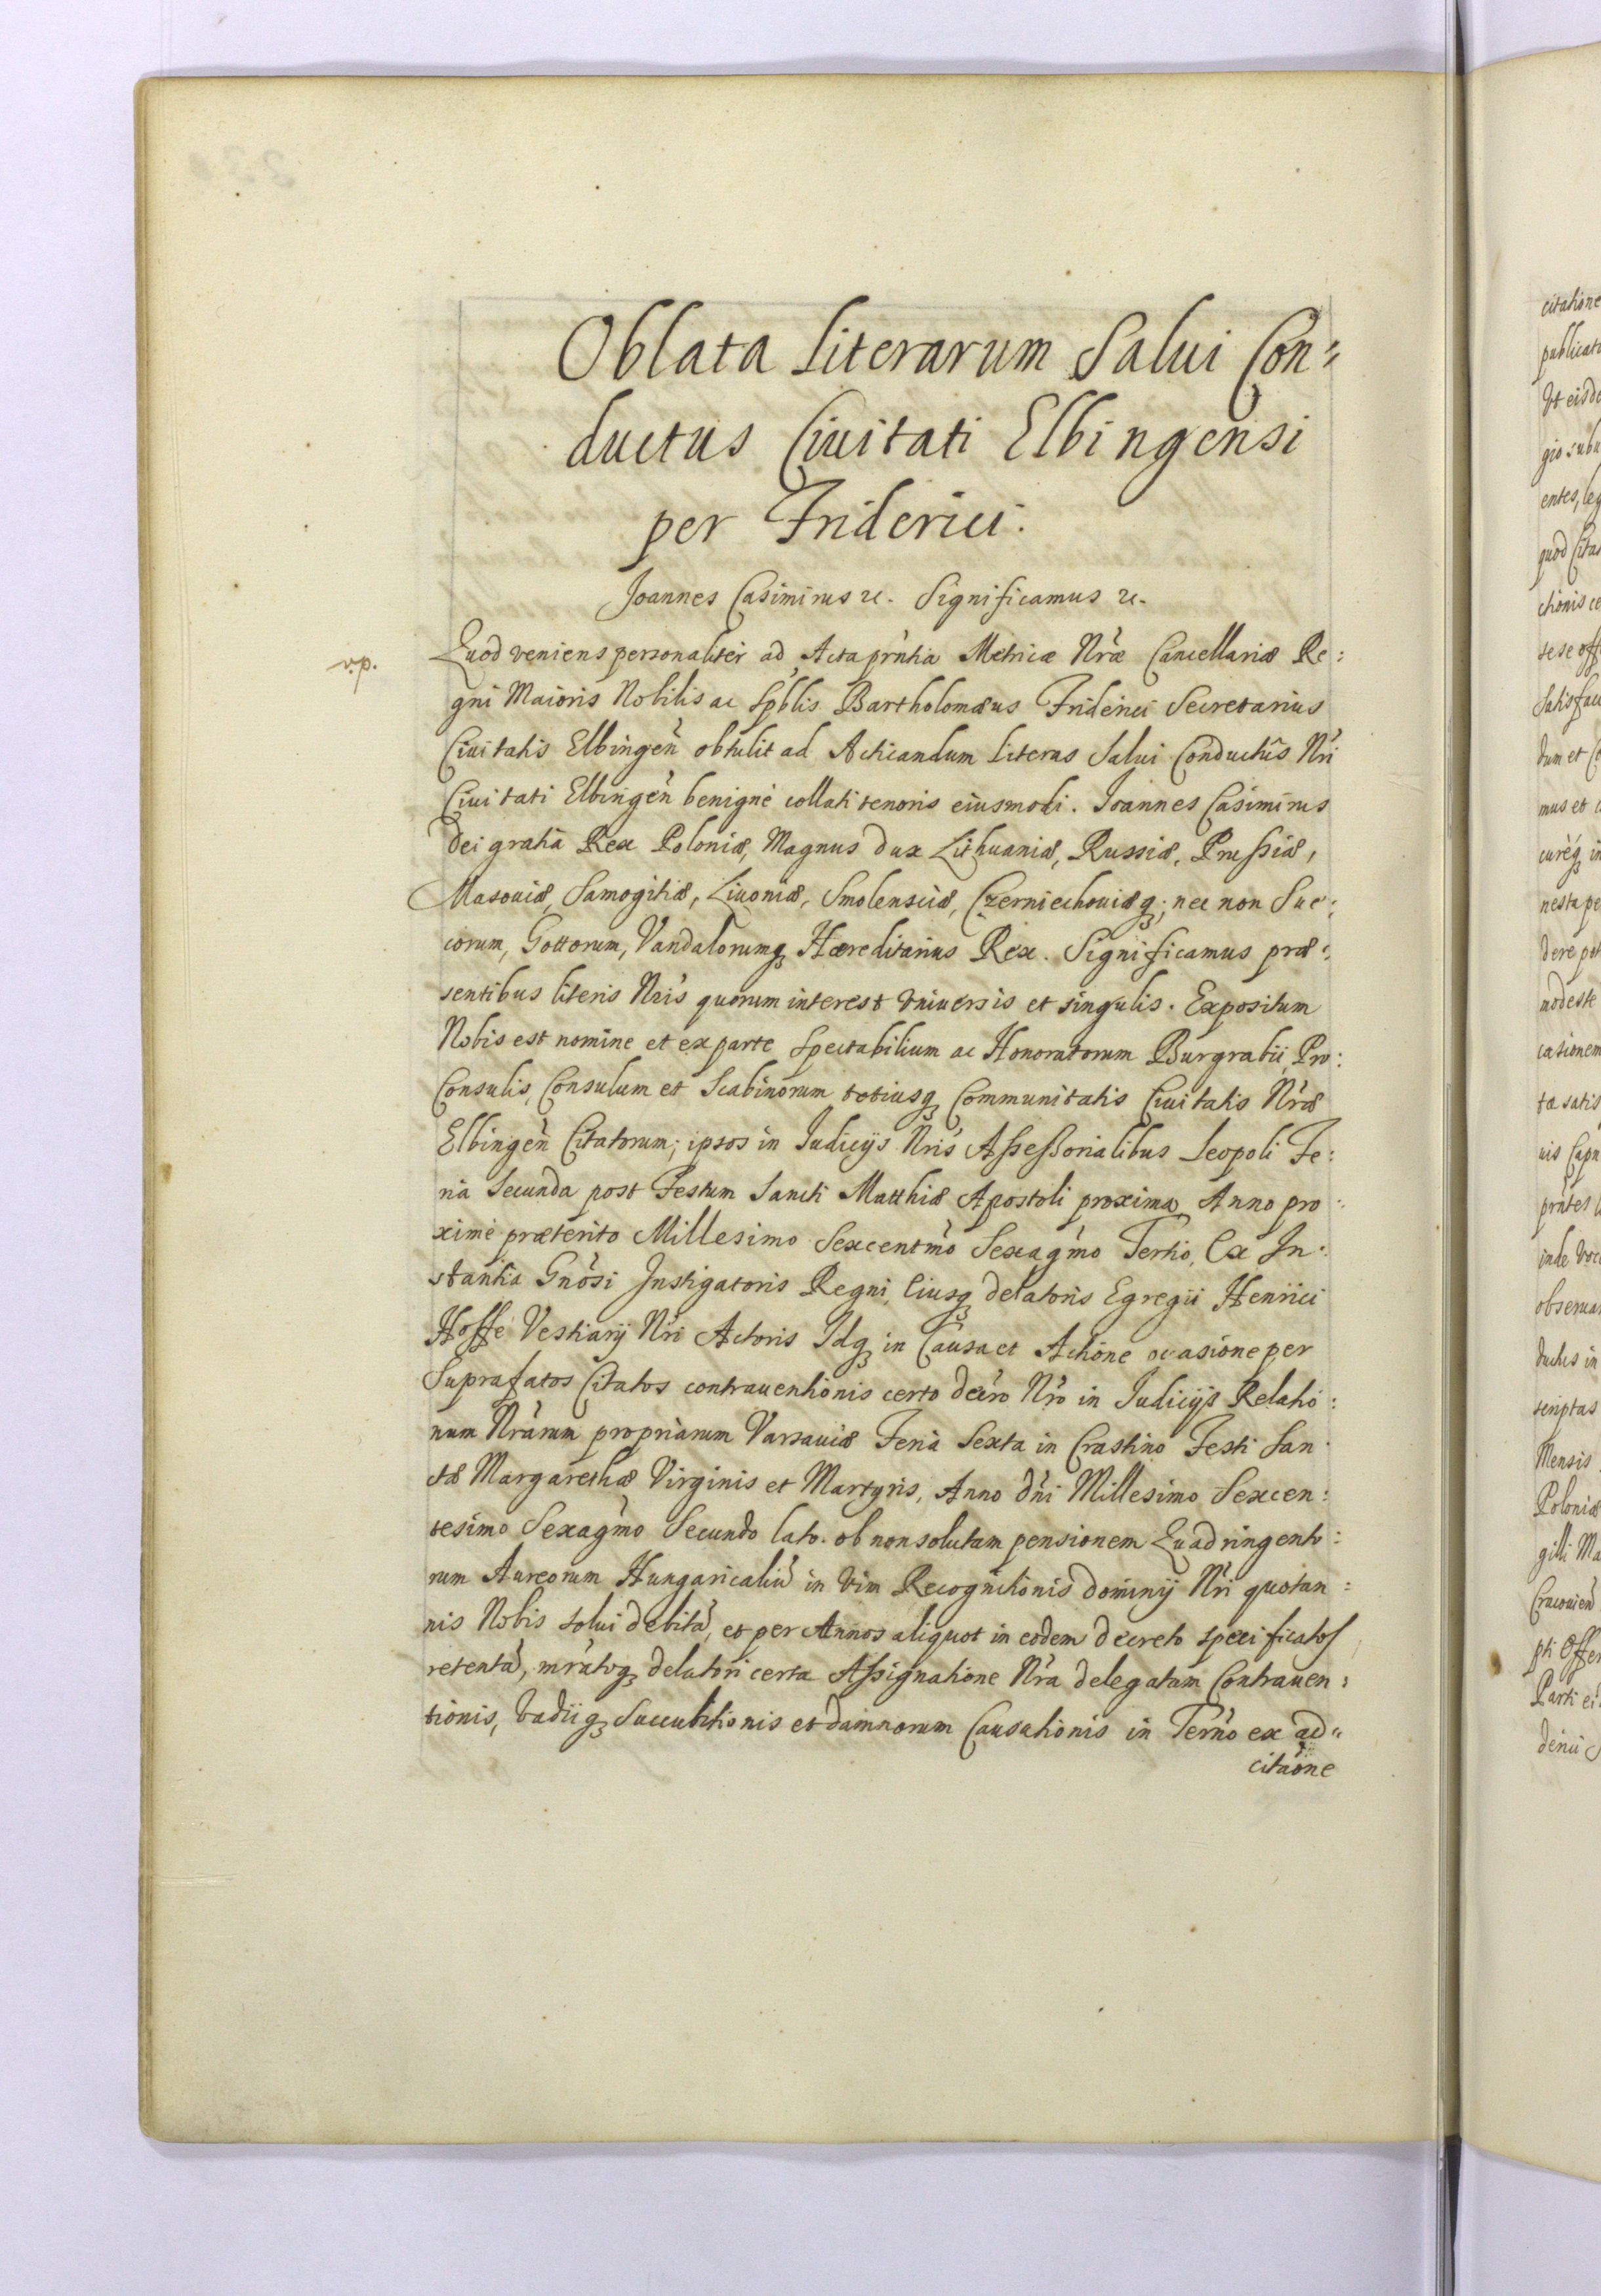 Oblata Literarum Salui Con=
ductus Ciuitati Elbingensi
per Friderici.
Joannes Casimirus etc. Significamus etc.
v.p.
Quod veniens personaliter ad Acta prntia Metricæ Nræ Cancellariæ Re:
gni Maioris Nobilis ac Spblis Bartholomæus Friderici Secretarius
Ciuitatis Elbingen obtulit ad Acticandum literas Salui Conductus Nri
Ciuitati Elbingen benigne collati tenoris eiusmodi. Joannes Casimirus
Dei gratia Rex Poloniæ, Magnus Dux Lithuaniæ, Russiæ, Prussiæ,
Masouiæ, Samogitiæ, Liuoniæ, Smolensciæ, Czerniechouiæq; nec non Sue:
corum, Gottorum, Vandalorumq Hæreditarius Rex. Significamus præ:
sentibus literis Nris quorum interest vniuersis et singulis. Expositum
Nobis est nomine et ex parte Spectabilium ac Honoratorum Burgrabii, Pro:
Consulis, Consulum et Scabinorum totiusq Communitatis Ciuitatis Nræ
Elbingen Citatorum; ipsos in Iudicijs Nris Assessorialibus Leopoli Fe:
ria Secunda post Festum Sancti Matthiæ Apostoli proxima Anno pro
ximè præterito Millesimo Sexcentmo Sexagmo Tertio, Ex In:
stantia Gnosi Instigatoris Regni, Eiusq delatoris Egregii Henrici
Hoffe Vestiarij Nri Actoris Idq in Causa et Actione occasione per
Suprafatos Citatos contrauentionis certo decro Nro in Iudicijs Relatio:
num Nrarum propriarum Varsauiæ Feria Sexta in Crastino Festi San
ctæ Margarethæ Virginis et Martyris, Anno Dni Millesimo Sexcen:
tesimo Sexagmo Secundo lato. ob non solutam pensionem Quadringento:
rum Aureorum Hungaricaliu in vim Recognitionis dominij Nri quotan:
nis Nobis solui debita, et per Annos aliquot in eodem decreto specificatos
retenta, mratoq delatori certa Assignatione Nra delegatam Contrauen:
tionis, Vadiiq Succubitionis et damnorum Causationis in Termo ex ad=
citaone
citatione
publicat
Vt eisd
gio sub
entes, leg
quod Cita
ctionis ce
sese off
Satisfac
dum et Co
mus et
cureq in
nesta pe
dere pot
modeste
cationem
tæ satis
uis Capn
prntes l
inde voc
obserua
ductus in
scriptas
Mensis
Poloniæ
gilli Ma
Cracouien
pti Offer
Parti ei
derici